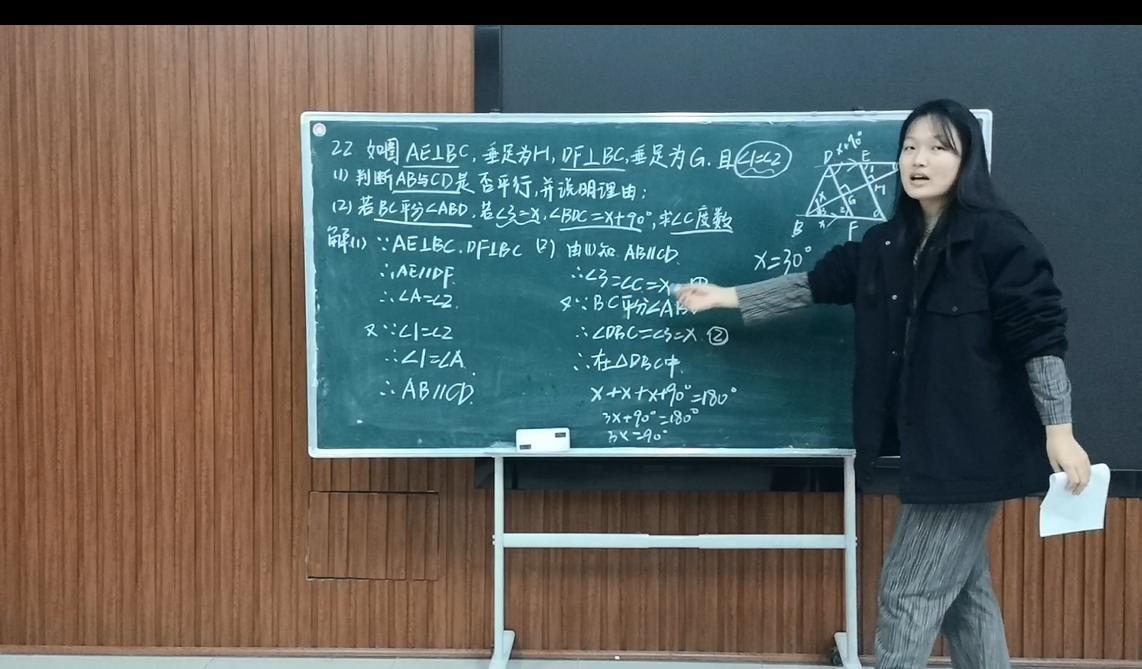 22 如图 AE⊥BC, 垂足为H, DF⊥BC, 垂足为G. 且∠1=∠2
(1) 判断AB与CD是否平行, 并说明理由;
(2) 若BC平分∠ABD, 若∠3=x, ∠BDC=x+90°, 求∠C度数
解(1) ∵AE⊥BC. DF⊥BC
∴AE∥DF.
∴∠A=∠2.
又∵∠1=∠2
∴∠1=∠A.
∴AB∥CD.
(2) 由(1)知 AB∥CD.
∴∠3=∠C=x
又∵BC平分∠AB
∴∠DBC=∠3=x ②
∴在△DBC中.
x+x+x+90°=180°
3x+90°=180°
3x=90°
x=30°
D x+90° E
1
x H
G
3 2
B x F C